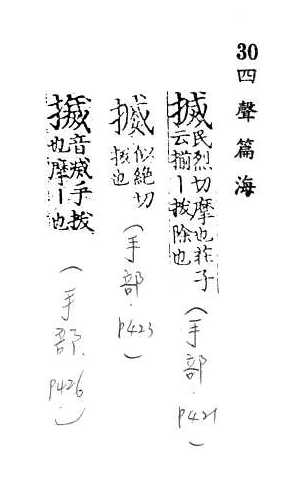 30 四聲篇海
搣 民烈切摩也莊子
云揃丨拔除也
(手部. P421)
似絶切
拔也
(手部. P423)
音滅手拔
也摩丨也
(手部. P426.)